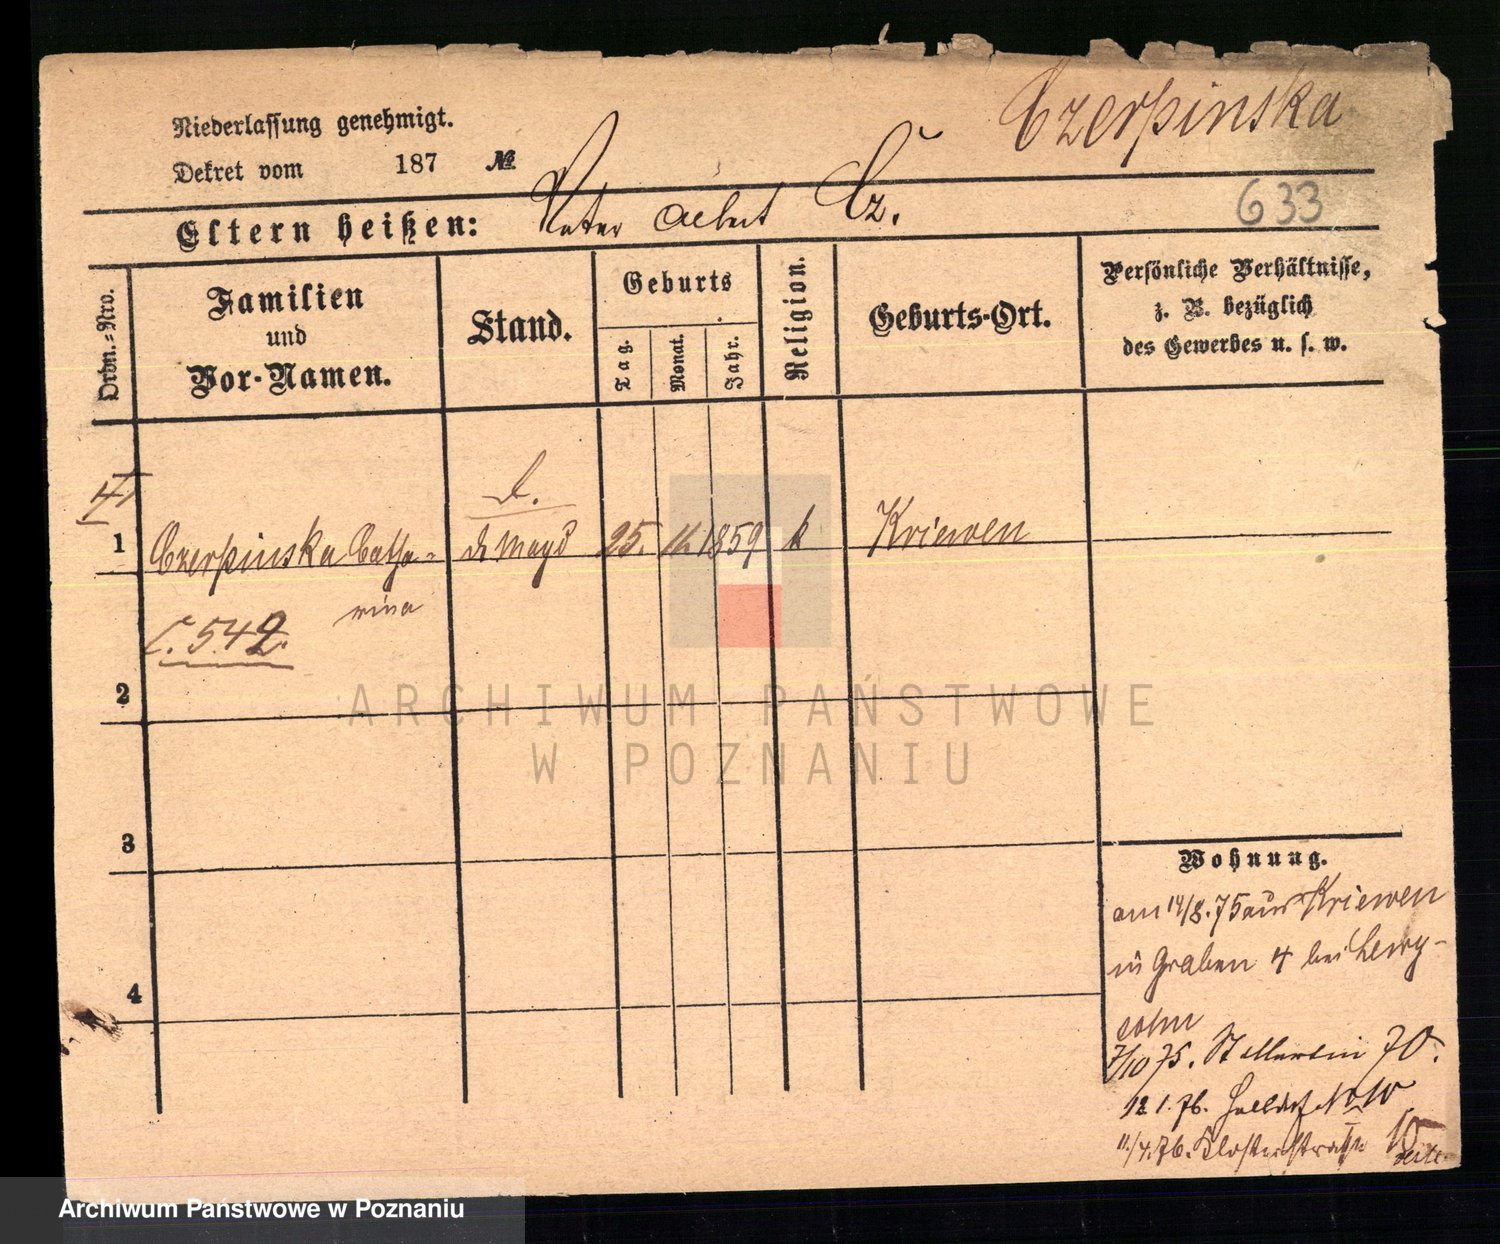 Czerpinska
Niederlassung genehmigt.
Dekret vom 187 №
633
Eltern heißen: Vater Albert Cz.
Ordn.-Nro.
Familien
und
Vor-Namen.
Stand.
Geburts
Tag.
Monat.
Jahr.
Religion.
Geburts-Ort.
Persönliche Verhältnisse,
z. B. bezüglich
des Gewerbes u. s. w.
1 Czerpinska Catha- d. Magd 25. 11. 1859 k Kriewen
rina
C. 542.
2
3
4
Wohnung.
am 14/8.75 aus Kriewen
in Graben 4 bei Lewy-
sohn
7/10 75. St Martin 70.
12 1.76. Halbdorf No 10
11/4.76. Klosterstraße 15
ARCHIWUM PAŃSTWOWE
W POZNANIU
Archiwum Państwowe w Poznaniu